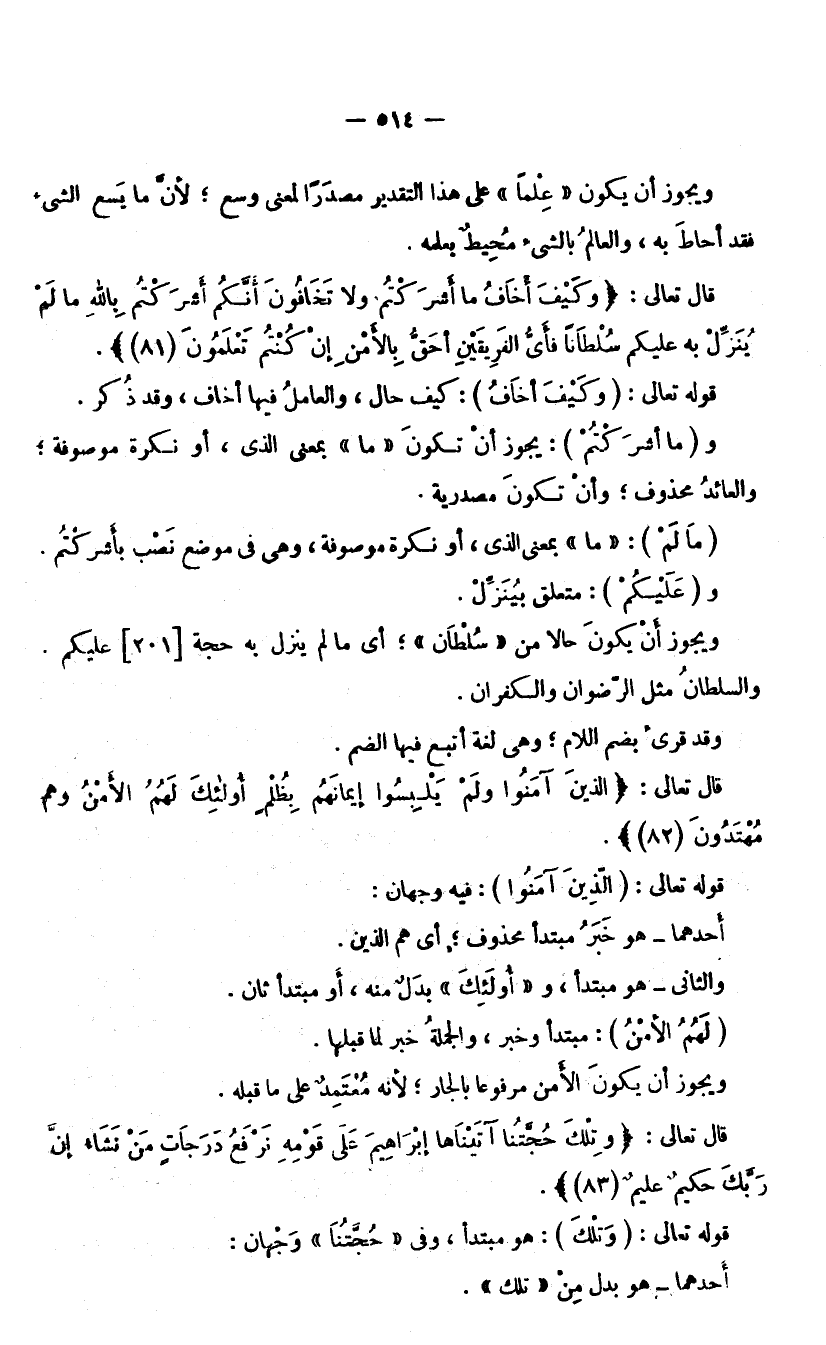 — ٥١٤ —
ويجوز أن يكون « عِلْماً » على هذا التقدير مصدَرًا لمعنى وسع ؛ لأنَّ ما يَسع الشىء
فقد أحاطَ به ، والعالمُ بالشىء مُحِيطٌ بعلمه .
قال تعالى : ﴿ وكَيْفَ أَخَافُ ما أَشرَ كْتُم ولا تَخَافُونَ أَنَّكُم أشرَ كْتُم بِاللهِ ما لَمْ
يُنَزِّلْ به عليكم سُلْطَاناً فأَىُّ الفَرِيقَيْنِ أحَقُّ بِالأَمْنِ إنْ كُنْتُم تَعْلَمُونَ (٨١) ﴾ .
قوله تعالى : ( وكَيْفَ أخَافُ ) : كيف حال ، والعاملُ فيها أخاف ، وقد ذُ كر .
و ( ما أشرَ كْتُمْ ) : يجوز أنْ تكونَ « ما » بمعنى الذى ، أو نكرة موصوفة ؛
والعائدُ محذوف ؛ وأنْ تكونَ مصدرية .
( مَا لَمْ ) : « ما » بمعنى الذى ، أو نكرة موصوفة ، وهى فى موضع نَصْب بأَشر كْتُم .
و ( عَلَيْكُمْ ) : متعلق بيُنَزِّلْ .
ويجوز أَنْ يكونَ حالا من « سُلْطَان » ؛ أى ما لم ينزل به حجة [ ٢٠١ ] عليكم .
والسلطانُ مثل الرّضوان والكفران .
وقد قرىء بضم اللام ؛ وهى لغة أُتبع فيها الضم .
قال تعالى : ﴿ الذينَ آمَنُوا ولَمْ يَلْبِسُوا إيمانَهُم بِظُلْمٍ أُولئِكَ لَهُمُ الأَمْنُ وهم
مُهْتَدُونَ (٨٢) ﴾ .
قوله تعالى : ( الَّذِينَ آمَنُوا ) : فيه وجهان :
أَحدهما ــ هو خَبَرُ مبتدأ محذوف ؛ أى هم الذين .
والثانى ــ هو مبتدأ ، و « أُولَئِكَ » بدَلٌ منه ، أَو مبتدأ ثان .
( لَهُمُ الأمْنُ ) : مبتدأ وخبر ، والجملةُ خبر لما قبلها .
ويجوز أن يكونَ الأَمن مرفوعا بالجار ؛ لأنه مُعْتَمِدٌ على ما قبله .
قال تعالى : ﴿ وتِلْكَ حُجَّتُنا آتَيْنَاها إبْرَاهِيمَ عَلَى قَوْمِهِ نَرْفَعُ دَرَجَاتٍ مَنْ نَشَاء إنَّ
رَبَّكَ حكيمٌ عليمٌ (٨٣) ﴾ .
قوله تعالى : ( وَتلْكَ ) : هو مبتدأ ، وفى « حُجَّتُنَا » وَجْهان :
أَحدهما ــ هو بدل مِنْ « تلك » .